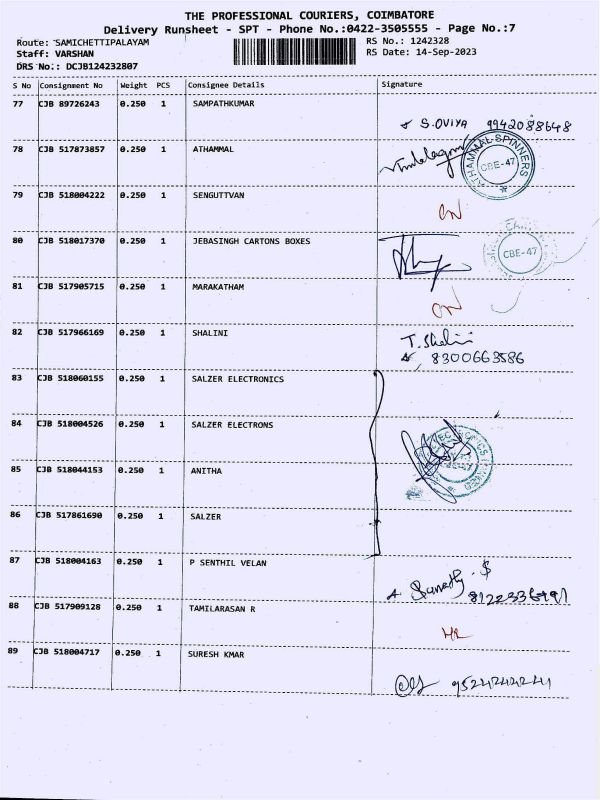 THE PROFESSIONAL COURIERS, COIMBATORE
Delivery Runsheet - SPT - Phone No.:0422-3505555 - Page No.:7
Route: SAMICHETTIPALAYAM RS No.: 1242328
Staff: VARSHAN RS Date: 14-Sep-2023
DRS No.: DCJB124232807
S No Consignment No Weight PCS Consignee Details Signature
77 CJB 89726243 0.250 1 SAMPATHKUMAR
S.OVIYA 9942088648
78 CJB 517873857 0.250 1 ATHAMMAL
ATHAMMAL SPINNERS CBE-47
79 CJB 518004222 0.250 1 SENGUTTVAN
80 CJB 518017370 0.250 1 JEBASINGH CARTONS BOXES
CBE-47
81 CJB 517905715 0.250 1 MARAKATHAM
82 CJB 517966169 0.250 1 SHALINI
T. Shalini
8300663586
83 CJB 518060155 0.250 1 SALZER ELECTRONICS
84 CJB 518004526 0.250 1 SALZER ELECTRONS
85 CJB 518044153 0.250 1 ANITHA
86 CJB 517861690 0.250 1 SALZER
87 CJB 518004163 0.250 1 P SENTHIL VELAN
88 CJB 517909128 0.250 1 TAMILARASAN R
89 CJB 518004717 0.250 1 SURESH KMAR